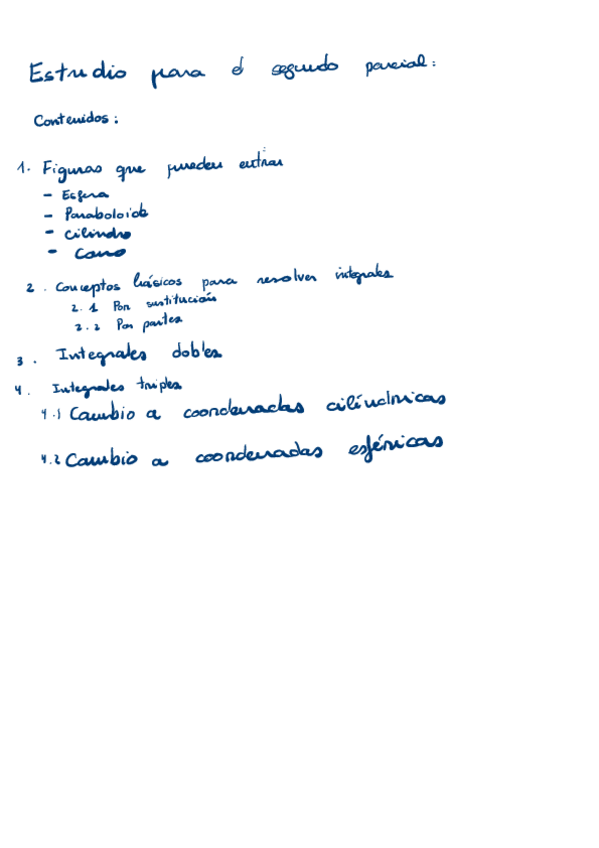 Estudio para el segundo parcial:
Contenidos:
1. Figuras que pueden entrar
- Esfera
- Paraboloide
- Cilindro
- Cono
2. Conceptos básicos para resolver integrales
2.1 Por sustitución
2.2 Por partes
3. Integrales dobles
4. Integrales triples
4.1 Cambio a coordenadas cilíndricas
4.2 Cambio a coordenadas esféricas